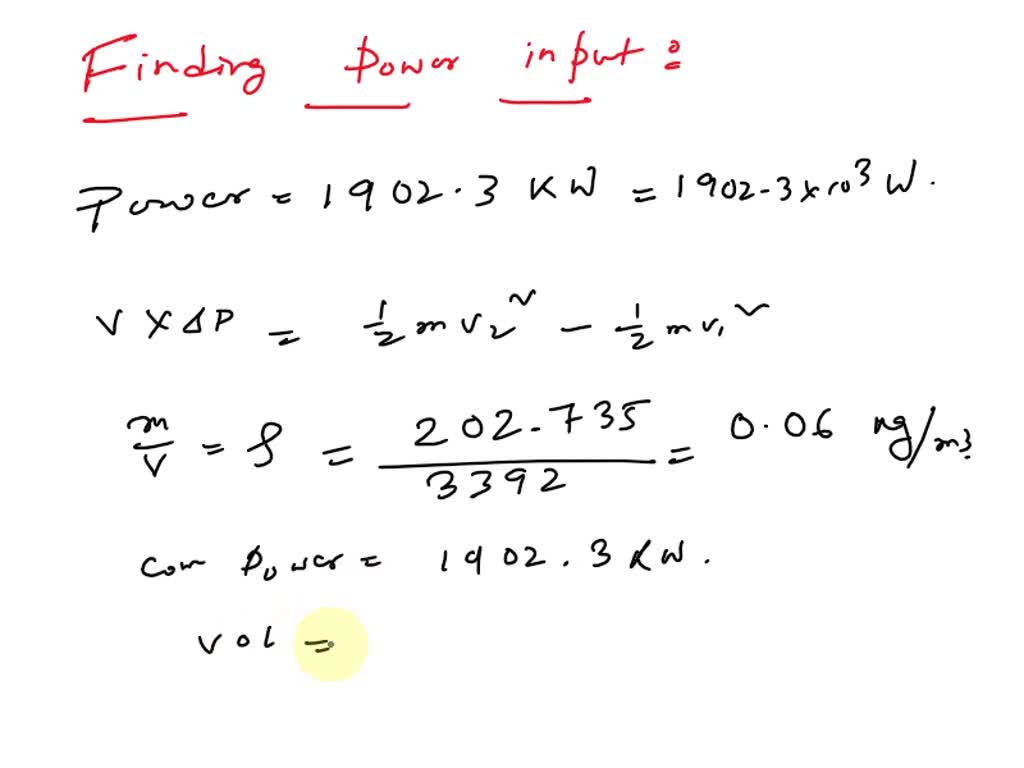 Finding Power input :
Power = 1902.3 KW = 1902-3 x 10³ W.
V X ΔP = 1/2 m v₂² - 1/2 m v₁²
m/V = ρ = 202-735/3392 = 0.06 kg/m3
com Power = 1902.3 KW.
vol =